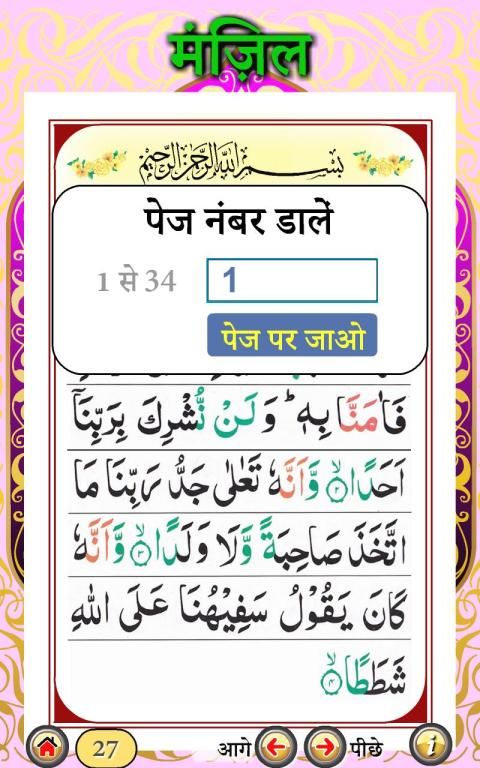 मंज़िल
بِسْمِ اللهِ الرَّحْمٰنِ الرَّحِيْمِ
पेज नंबर डालें
1 से 34
1
पेज पर जाओ
فَاٰمَنَّا بِهٖ ؕ وَلَنْ نُّشْرِكَ بِرَبِّنَاۤ
اَحَدًا ۙ﴿۲﴾ وَّاَنَّهٗ تَعٰلٰى جَدُّ رَبِّنَا مَا
اتَّخَذَ صَاحِبَةً وَّلَا وَلَدًا ۙ﴿۳﴾ وَّاَنَّهٗ
كَانَ يَقُوْلُ سَفِيْهُنَا عَلَى اللهِ
شَطَطًا ۙ﴿۴﴾
27
आगे
पीछे
i